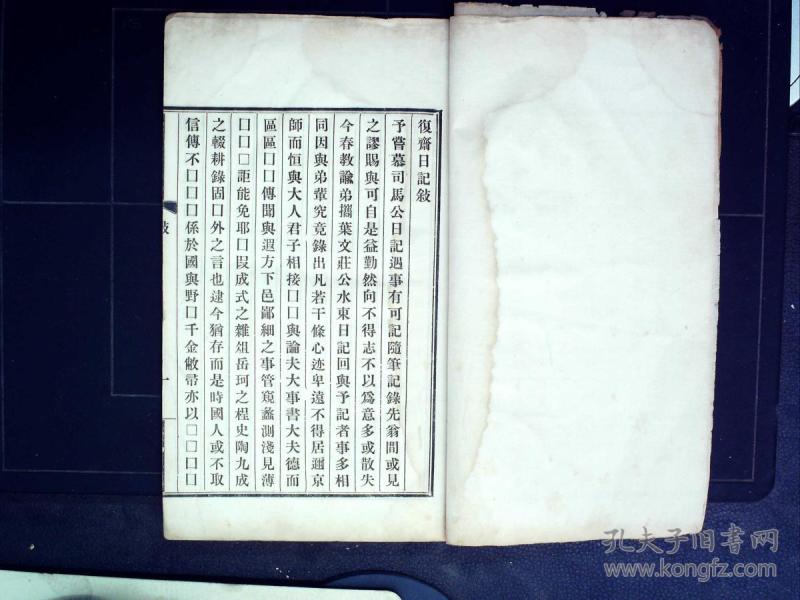 復齋日記敍
予嘗慕司馬公日記遇事有可記隨筆記錄先翁間或見
之謬賜與可自是益勤然向不得志不以爲意多或散失
今春教諭弟攜葉文莊公水東日記回與予記者事多相
同因與弟輩究竟錄出凡若干條心迹卑遠不得居邇京
師而恒與大人君子相接□□與論夫大事書大夫德而
區區□□傳聞與遐方下邑鄙細之事管窺蠡測淺見薄
□□□詎能免耶□段成式之雜俎岳珂之桯史陶九成
之輟耕錄固□外之言也逮今猶存而是時國人或不取
信傳不□□□係於國與野□千金敝帚亦以□□□□
敍
一
孔夫子旧书网
www.kongfz.com